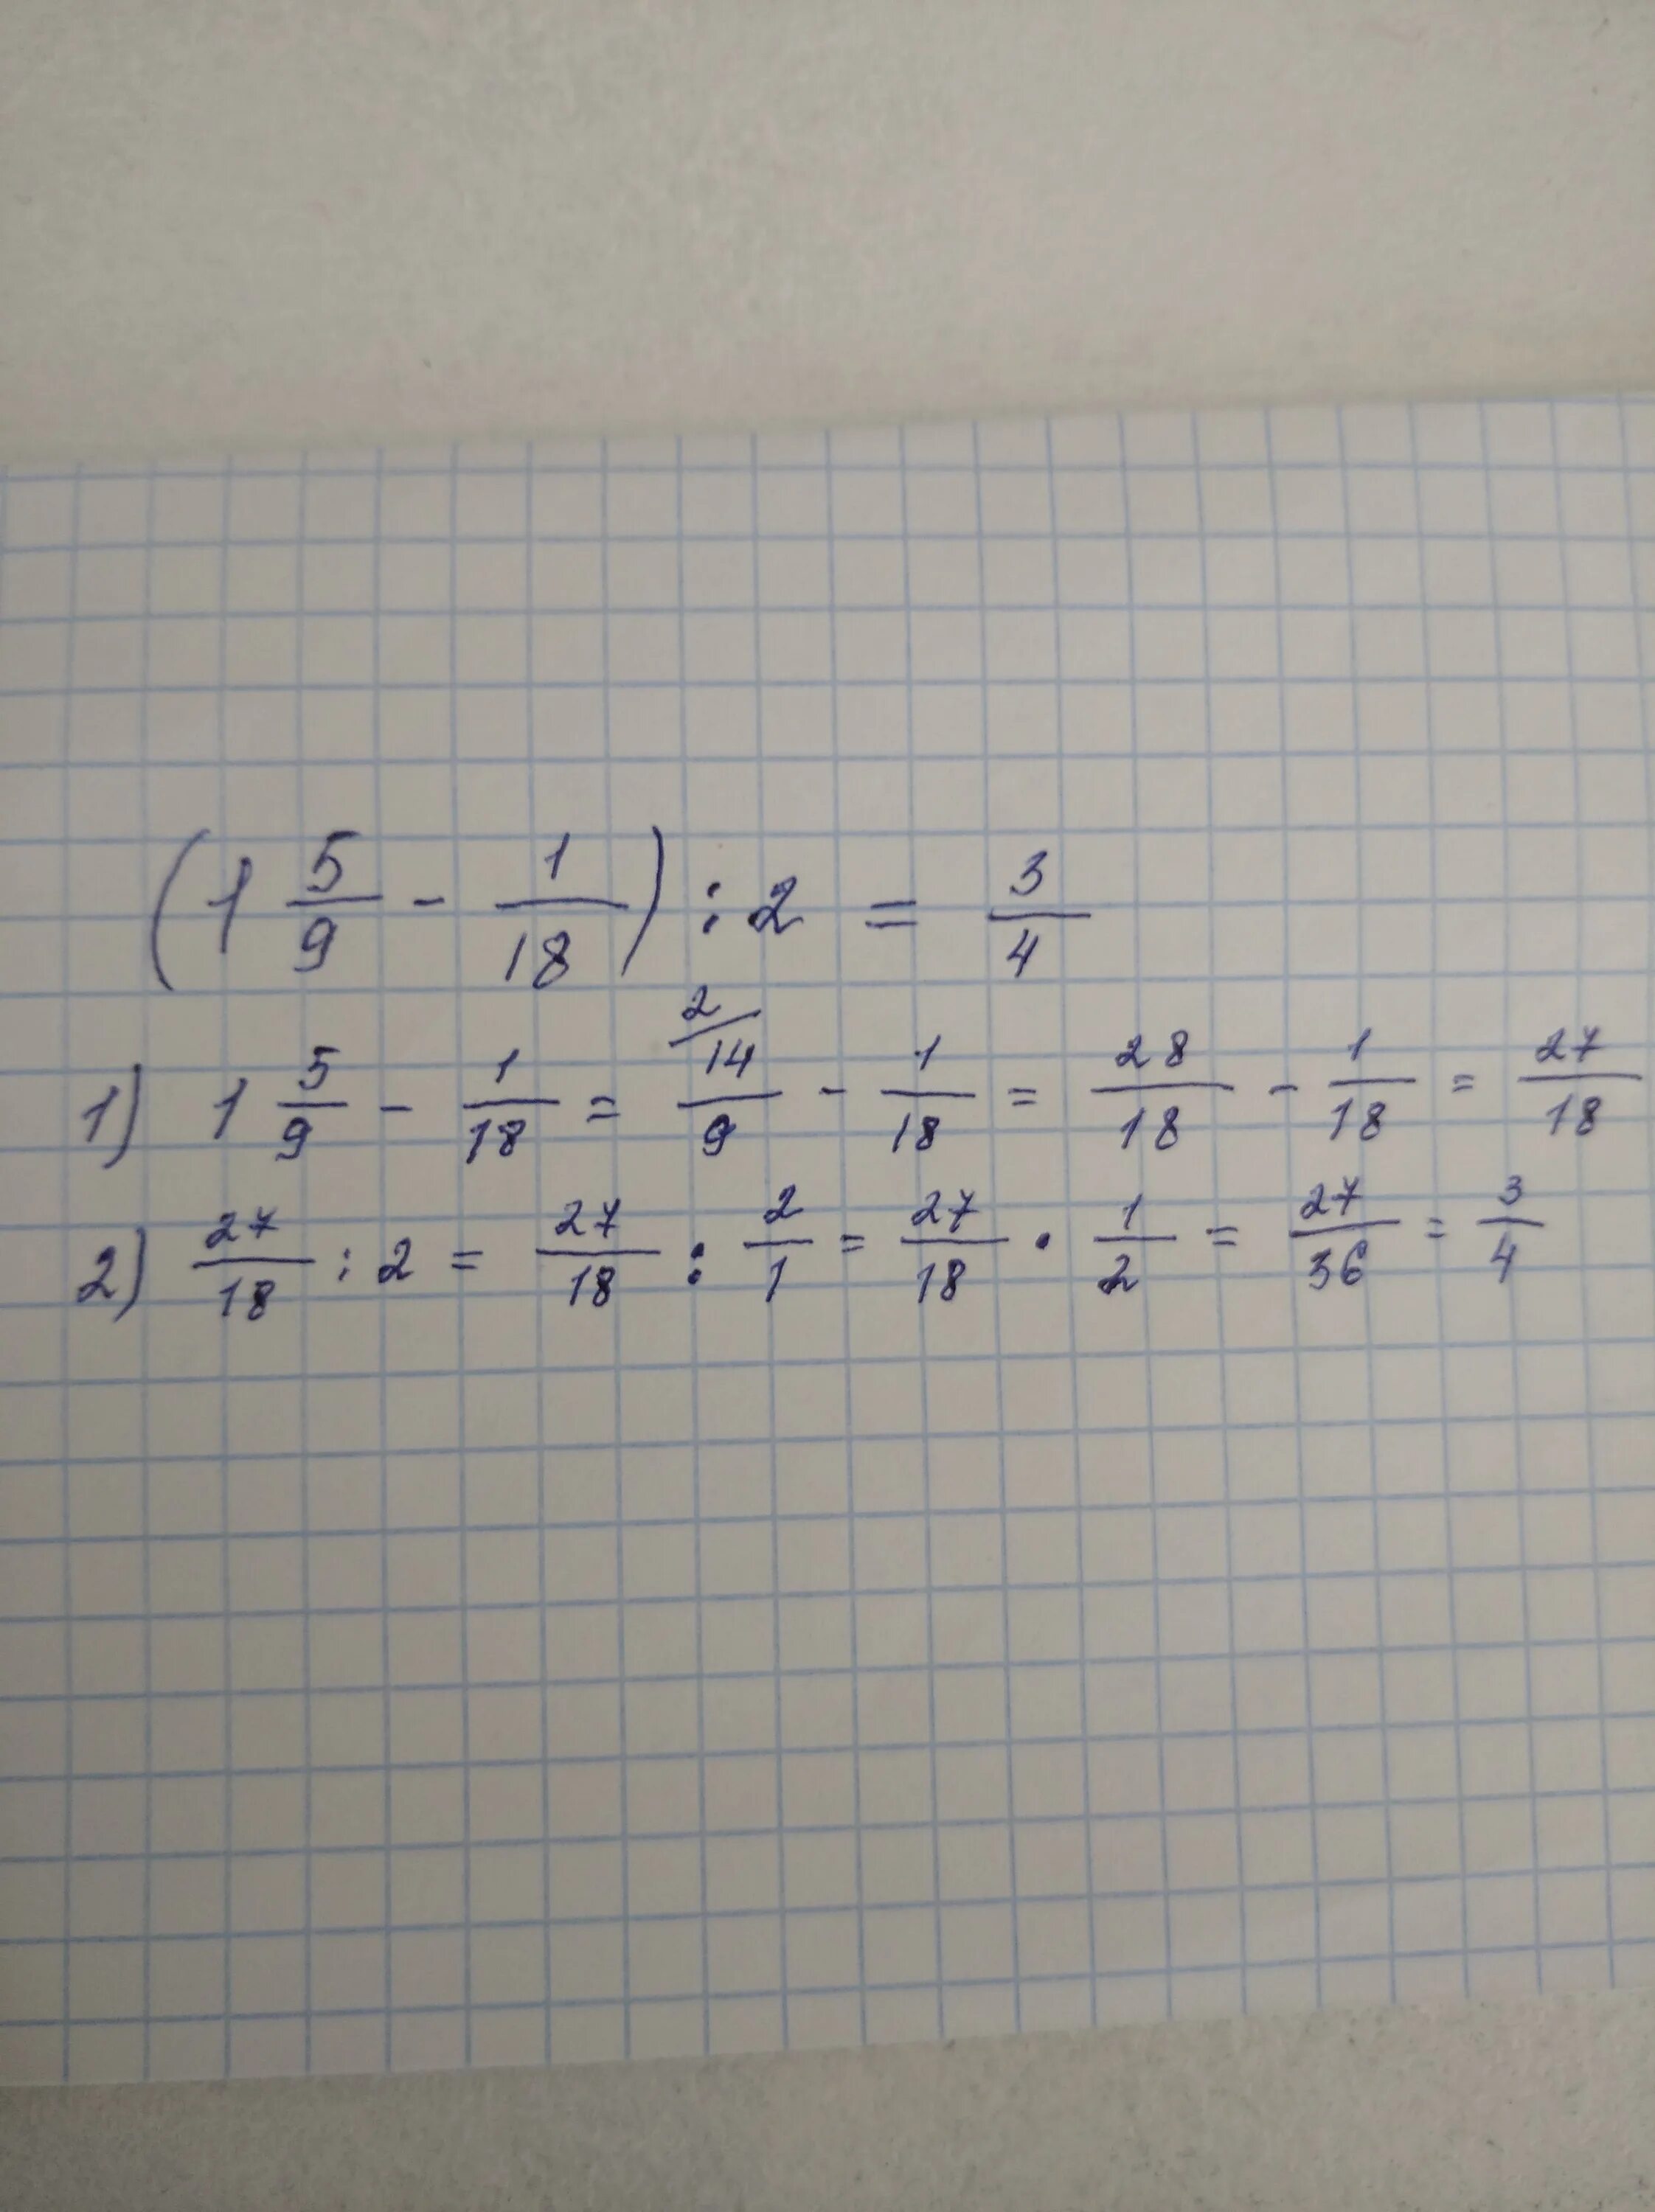 (1 5/9 - 1/18) : 2 = 3/4
1) 1 5/9 - 1/18 = 2/ 14/9 - 1/18 = 28/18 - 1/18 = 27/18
2) 27/18 : 2 = 27/18 : 2/1 = 27/18 · 1/2 = 27/36 = 3/4